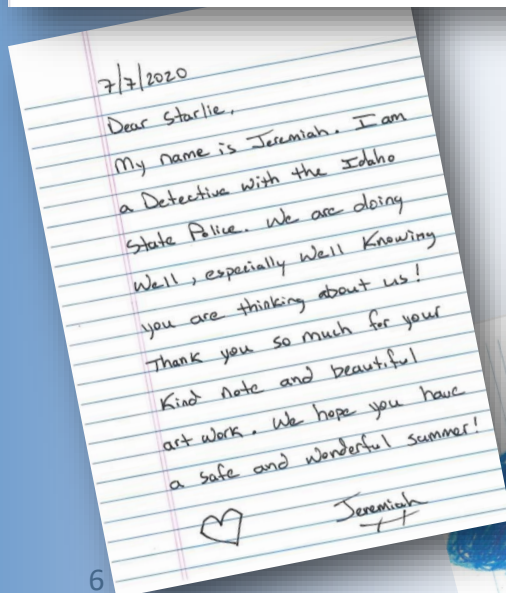 7/7/2020
Dear Starlie,
My name is Jeremiah. I am
a Detective with the Idaho
State Police. We are doing
Well, especially Well Knowing
you are thinking about us!
Thank you so much for your
Kind note and beautiful
art work. We hope you have
a safe and wonderful summer!
Jeremiah
6